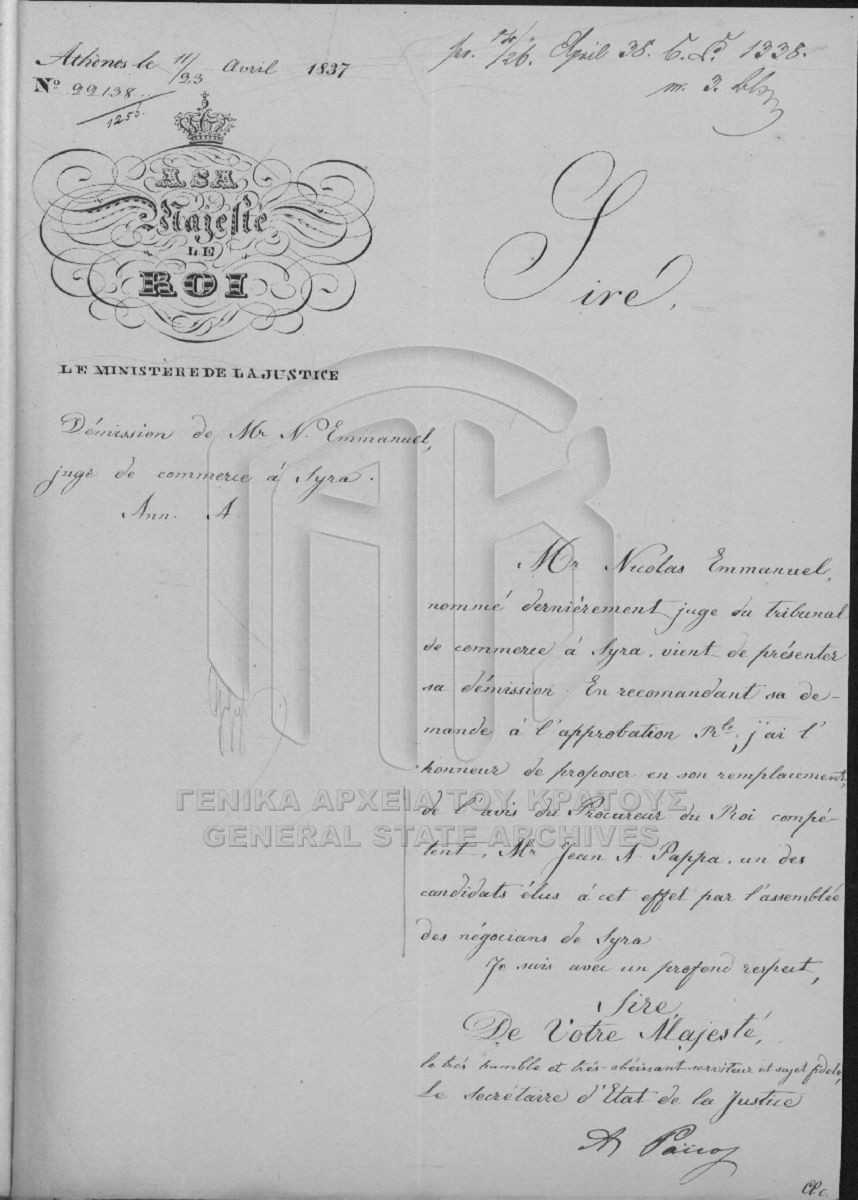 Athènes le 11/23 Avril 1837
No 22138
1255
pr. 14/26. April 38. C. P. 1338.
m. 3.
A SA
Majesté
LE
ROI
LE MINISTÈRE DE LA JUSTICE
Siré,
Démission de Mr N. Emmanuel,
juge de commerce à Syra.
Ann. A
Mr Nicolas Emmanuel,
nommé dernièrement juge du tribunal
de commerce à Syra, vient de présenter
sa démission. En recomandant sa de-
mande à l'approbation Rle, j'ai l'
honneur de proposer en son remplacement,
de l'avis du Procureur du Roi compé-
tent, Mr Jean A Pappa, un des
candidats élus à cet effet par l'assemblée
des négocians de Syra
Je suis avec un profond respect,
Sire
De Votre Majesté,
le très humble et très-obéissant serviteur et sujet fidele,
Le Secrétaire d'Etat de la Justice
ΓΕΝΙΚΑ ΑΡΧΕΙΑ ΤΟΥ ΚΡΑΤΟΥΣ
GENERAL STATE ARCHIVES